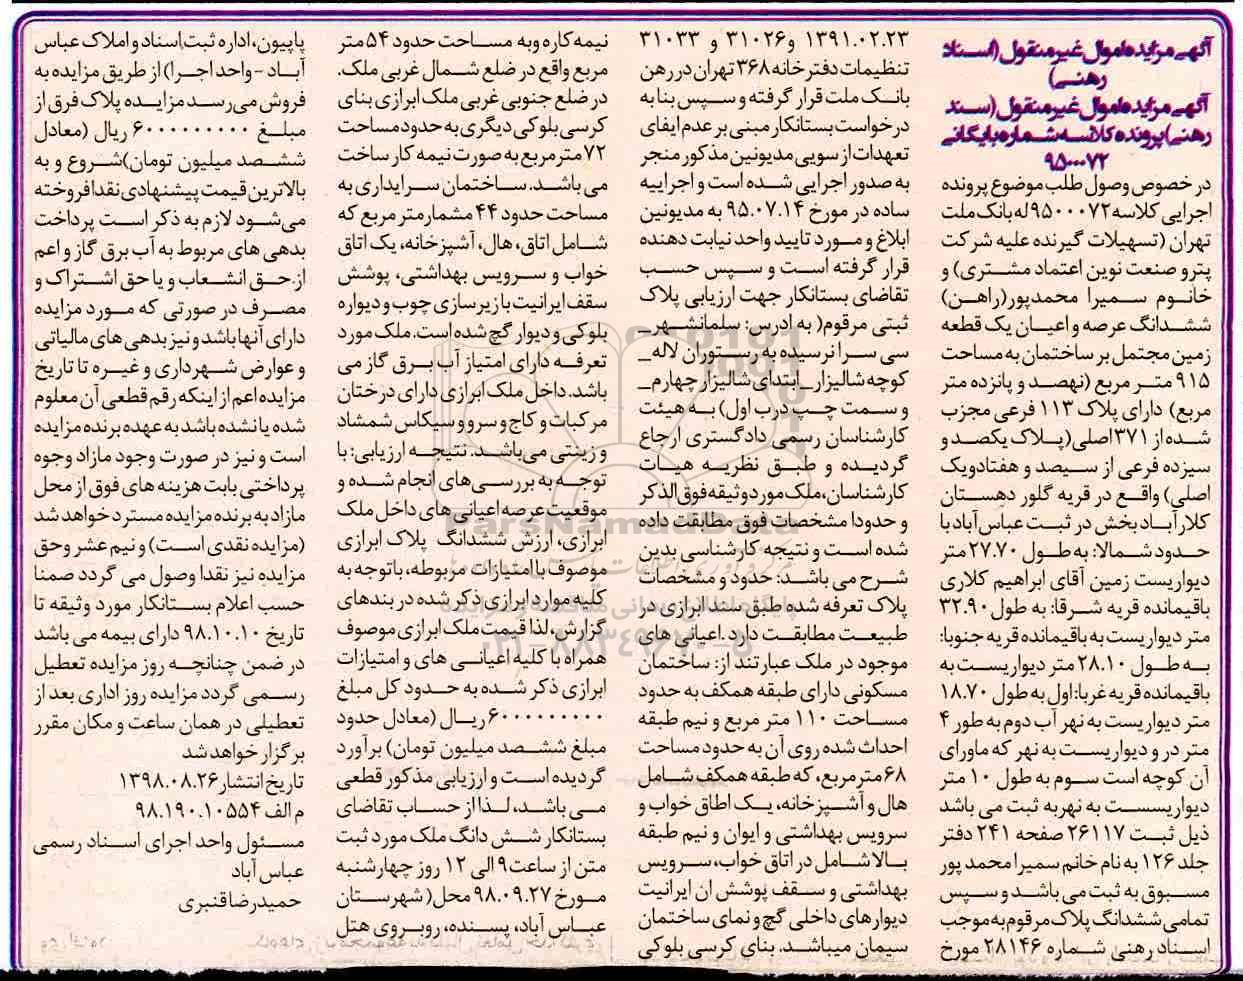 آگهی مزایده اموال غیر منقول (اسناد
رهنی)
آگهی مزایده اموال غیر منقول (سند
رهنی) پرونده کلاسه شماره بایگانی
۹۵۰۰۰۷۲
در خصوص وصول طلب موضوع پرونده
اجرایی کلاسه ۹۵۰۰۰۷۲ له بانک ملت
تهران (تسهیلات گیرنده علیه شرکت
پترو صنعت نوین اعتماد مشتری) و
خانوم سمیرا محمدپور(راهن)
ششدانگ عرصه و اعیان یک قطعه
زمین مجتمل بر ساختمان به مساحت
۹۱۵ متر مربع (نهصد و پانزده متر
مربع) دارای پلاک ۱۱۳ فرعی مجزب
شده از ۳۷۱اصلی(پلاک یکصد و
سیزده فرعی از سیصد و هفتادویک
اصلی) واقع در قریه گلور دهستان
کلارآباد بخش در ثبت عباس آباد با
حدود شمالا: به طول ۲۷.۷۰ متر
دیواریست زمین آقای ابراهیم کلاری
باقیمانده قریه شرقا: به طول ۳۲.۹۰
متر دیواریست به باقیمانده قریه جنوبا:
به طول ۲۸.۱۰ متر دیواریست به
باقیمانده قریه غربا: اول به طول ۱۸.۷۰
متر دیواریست به نهر آب دوم به طور ۴
متر در و دیواریست به نهر که ماورای
آن کوچه است سوم به طول ۱۰ متر
دیواریسست به نهربه ثبت می باشد
ذیل ثبت ۲۶۱۱۷ صفحه ۲۴۱ دفتر
جلد ۱۲۶ به نام خانم سمیرا محمد پور
مسبوق به ثبت می باشد و سپس
تمامی ششدانگ پلاک مرقوم به موجب
اسناد رهنی شماره ۲۸۱۴۶ مورخ
۱۳۹۱.۰۲.۲۳ و۳۱۰۲۶ و ۳۱۰۳۳
تنظیمات دفترخانه ۳۶۸ تهران در رهن
بانک ملت قرار گرفته و سپس بنا به
درخواست بستانکار مبنی بر عدم ایفای
تعهدات از سویی مدیونین مذکور منجر
به صدور اجرایی شده است و اجراییه
ساده در مورخ ۹۵.۰۷.۱۴ به مدیونین
ابلاغ و مورد تایید واحد نیابت دهنده
قرار گرفته است و سپس حسب
تقاضای بستانکار جهت ارزیابی پلاک
ثبتی مرقوم( به ادرس: سلمانشهر_
سی سرا نرسیده به رستوران لاله_
کوچه شالیزار_ابتدای شالیزار چهارم_
و سمت چپ درب اول) به هیئت
کارشناسان رسمی دادگستری ارجاع
گردیده و طبق نظریه هیات
کارشناسان، ملک مورد وثیقه فوق الذکر
و حدودا مشخصات فوق مطابقت داده
شده است و نتیجه کارشناسی بدین
شرح می باشد: حدود و مشخصات
پلاک تعرفه شده طبق سند ابرازی در
طبیعت مطابقت دارد .اعیانی های
موجود در ملک عبارتند از: ساختمان
مسکونی دارای طبقه همکف به حدود
مساحت ۱۱۰ متر مربع و نیم طبقه
احداث شده روی آن به حدود مساحت
۶۸ متر مربع، که طبقه همکف شامل
هال و آشپزخانه، یک اطاق خواب و
سرویس بهداشتی و ایوان و نیم طبقه
بالا شامل در اتاق خواب، سرویس
بهداشتی و سقف پوشش ان ایرانیت
دیوارهای داخلی گچ و نمای ساختمان
سیمان میباشد. بنای کرسی بلوکی
نیمه کاره وبه مساحت حدود ۵۴ متر
مربع واقع در ضلع شمال غربی ملک.
در ضلع جنوبی غربی ملک ابرازی بنای
کرسی بلوکی دیگری به حدود مساحت
۷۲ متر مربع به صورت نیمه کار ساخت
می باشد. ساختمان سرایداری به
مساحت حدود ۴۴ مشمار متر مربع که
شامل اتاق، هال، آشپزخانه، یک اتاق
خواب و سرویس بهداشتی، پوشش
سقف ایرانیت با زیرسازی چوب و دیواره
بلوکی و دیوار گچ شده است. ملک مورد
تعرفه دارای امتیاز آب برق گاز می
باشد. داخل ملک ابرازی دارای درختان
مرکبات و کاج و سرو و سیکاس شمشاد
و زینتی می باشد. نتیجه ارزیابی: با
توجه به بررسی های انجام شده و
موقعیت عرصه اعیانی های داخل ملک
ابرازی، ارزش ششدانگ پلاک ابرازی
موصوف با امتیازات مربوطه، باتوجه به
کلیه موارد ابرازی ذکر شده در بندهای
گزارش، لذا قیمت ملک ابرازی موصوف
همراه با کلیه اعیانی های و امتیازات
ابرازی ذکر شده به حدود کل مبلغ
۶۰۰۰۰۰۰۰۰۰ ریال (معادل حدود
مبلغ ششصد میلیون تومان) برآورد
گردیده است و ارزیابی مذکور قطعی
می باشد، لذا از حساب تقاضای
بستانکار شش دانگ ملک مورد ثبت
متن از ساعت ۹ الی ۱۲ روز چهارشنبه
مورخ ۹۸.۰۹.۲۷ محل( شهرستان
عباس آباد، پسنده، روبروی هتل
پاپیون، اداره ثبت اسناد و املاک عباس
آباد -واحد اجرا) از طریق مزایده به
فروش می رسد مزایده پلاک فرق از
مبلغ ۶۰۰۰۰۰۰۰۰۰ ریال (معادل
ششصد میلیون تومان)شروع و به
بالاترین قیمت پیشنهادی نقدا فروخته
می شود لازم به ذکر است پرداخت
بدهی های مربوط به آب برق گاز و اعم
از.حق انشعاب و یا حق اشتراک و
مصرف در صورتی که مورد مزایده
دارای آنها باشد و نیز بدهی های مالیاتی
و عوارض شهرداری و غیره تا تاریخ
مزایده اعم از اینکه رقم قطعی آن معلوم
شده یا نشده باشد به عهده برنده مزایده
است و نیز در صورت وجود مازاد وجوه
پرداختی بابت هزینه های فوق از محل
مازاد به برنده مزایده مسترد خواهد شد
(مزایده نقدی است) و نیم عشر وحق
مزایده نیز نقدا وصول می گردد ضمنا
حسب اعلام بستانکار مورد وثیقه تا
تاریخ ۹۸.۱۰.۱۰ دارای بیمه می باشد
در ضمن چنانچه روز مزایده تعطیل
رسمی گردد مزایده روز اداری بعد از
تعطیلی در همان ساعت و مکان مقرر
برگزار خواهد شد
تاریخ انتشار ۱۳۹۸.۰۸.۲۶
م الف ۹۸.۱۹۰.۱۰۵۵۴
مسئول واحد اجرای اسناد رسمی
عباس آباد
حمیدرضا قنبری
ParsNamadData
۰۲۱-۸۸۳۴۹۶۷۰-۵